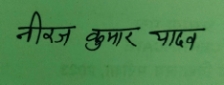 नीरज कुमार यादव